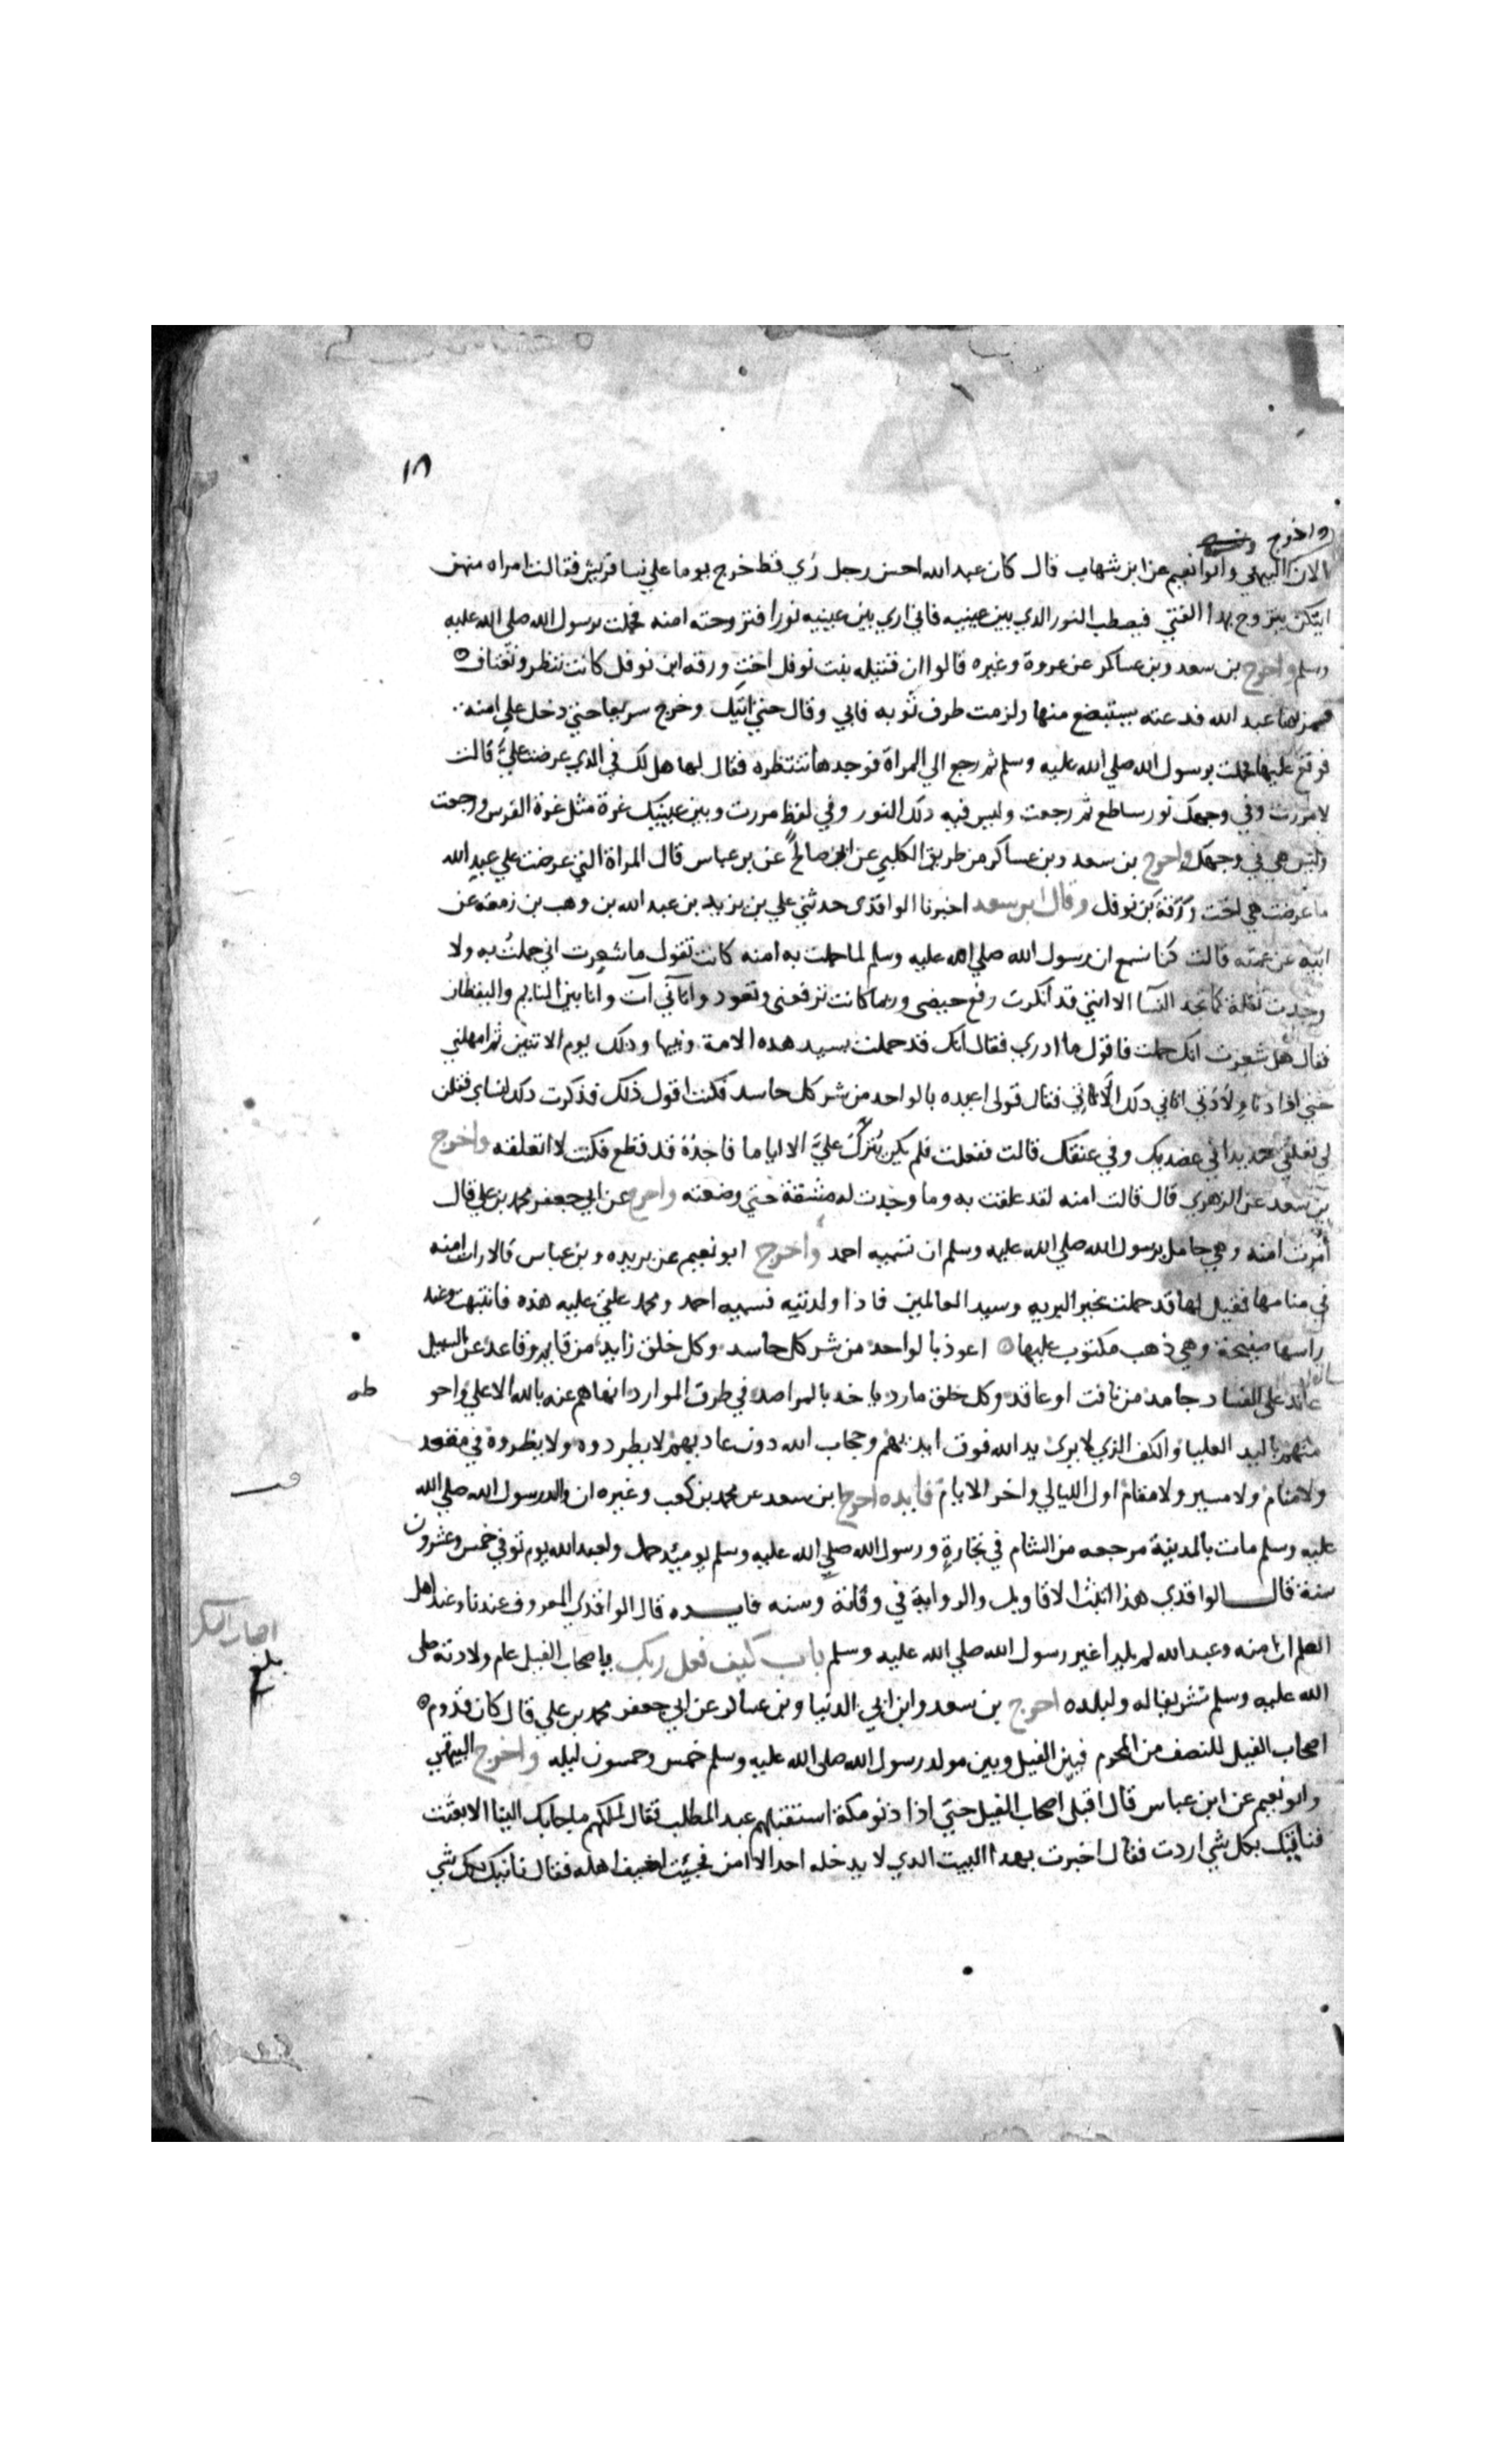 ١٨
واخرج
الان البيهقي وابو نعيم عن ابن شهاب قال كان عبد الله احسن رجل رُي قط خرج يوما علي نسا قريش فقالت امراه منهن
ايتكن يتزوج بهدا الفتي فيصطب النور الدي بين عينيه فاني اري بين عينيه نورا فتزوجته امنه فحملت برسول الله صلى الله عليه
وسلم واخرج بن سعد وبن عساكر عن عروة وغيره قالوا ان قتيله بنت نوفل اخت ورقه ابن نوفل كانت تنظر وتعتاف
فمر بها عبد الله فدعته يستبضع منها ولزمت طرف ثوبه فابي وقال حتي اتيك وخرج سريعا حتي دخل علي امنه
فوقع عليها فحملت برسول الله صلي الله عليه وسلم ثم رجع الي المراة فوجدها تنتظره فقال لها هل لك في الدي عرضت عليَّ قالت
لا مررت وفي وجهك نور ساطع ثم رجعت وليس فيه دلك النور وفي لفظ مررت وبين عينيك غرة مثل غرة الفرس ورجعت
وليس هي في وجهك واخرج بن سعد وبن عساكر من طريق الكلبي عن ابي صالح عن بن عباس قال المراة التي عرضت علي عبد الله
ما عرضت هي اخت ورقة بن نوفل وقال ابن سعد اخبرنا الواقدى حدثني علي بن يزيد بن عبد الله بن وهب بن زمعه عن
ابيه عن عمته قالت كنا نسمع ان رسول الله صلي الله عليه وسلم لما حملت به امنه كانت تقول ما شعرت اني حملت به ولا
وجدت ثقلة كما تجد النسآ الا انني قد انكرت رفع حيضى وربما كانت ترفعني وتعود واتآني آت وانا بين النايم واليقظان
فقال هل شعرت انك حملت فاقول ما ادري فقال انك قد حملت بسيد هده الامة ونبيها ودلك يوم الاثنين ثم امهلني
حتي اذا دنا ولادتي اتاني دلك الآتي فقال قولى اعيده بالواحد من شر كل حاسد فكنت اقول ذلك فذكرت دلك لنساي فقلن
لي تعلقي حديدا في عضديك وفي عنقك قالت ففعلت فلم يكن يُترك عليَّ الا اياما فاجدُه قد قطع فكنت لا اتعلقه واخرج
بن سعد عن الزهري قال قالت امنه لقد علقت به وما وجدت له مشقة حتي وضعته واخرج عن ابي جعفر محمد بن علي قال
أُمرت امنه وهي حامل برسول الله صلي الله عليه وسلم ان تسميه احمد واخرج ابو نعيم عن بريده وبن عباس قالا رات امنه
في منامها فقيل لها قد حملت بخير البريه وسيد العالمين فاذا ولدتيه فسميه احمد ومحمد علقي عليه هذه فانتبهت وعند
راسها صحيفة وهي ذهب مكتوب عليها اعوذ بالواحد من شر كل حاسد وكل خلق زايد من قايم وقاعد عن السبيل
عاند على الفساد جامد من نافث او عاقد وكل خلق مارد ياخد بالمراصد في طرق الموارد انهاهم عنه بالله الاعلي واحو
طه
منهم باليد العليا والكف الذي لا يرى يد الله فوق ايديهم وحجاب الله دون عاديهم لا يطردوه ولا يضروه في مقعد
ولا منام ولا مسير ولا مقام اول الليالي واخر الايام فايده اخرج ابن سعد عن محمد بن كعب وغيره ان والد رسول الله صلي الله
عليه وسلم مات بالمدينة مرجعه من الشام في تجارةٍ ورسول الله صلي الله عليه وسلم يوميئد حمل ولعبد الله يوم توفي خمس وعشرون
سنة قال الواقدي هذا اثبت الاقاويل والرواية في وفاته وسنه فايده قال الواقدي المعروف عندنا وعند اهل
العلم ان امنه وعبد الله لم يلدا غير رسول الله صلي الله عليه وسلم باب كيف فعل ربك باصحاب الفيل عام ولادته صلى
بلغ
الله عليه وسلم تشريفا له ولبلده اخرج بن سعد وابن ابي الدنيا وبن عساكر عن ابي جعفر محمد بن علي قال كان قدوم
اصحاب الفيل للنصف من المحرم فبين الفيل وبين مولد رسول الله صلى الله عليه وسلم خمس وخمسون ليله واخرج البيهقي
وابو نعيم عن ابن عباس قال اقبل اصحاب الفيل حتي اذا دنو مكة استقبلهم عبد المطلب فقال لملكهم ما جابك الينا الا بعثت
فناتيك بكل شي اردت فقال اخبرت بهدا البيت الدي لا يدخله احد الا امن فجيئت اخيف اهله فقال ناتيك بكل شي